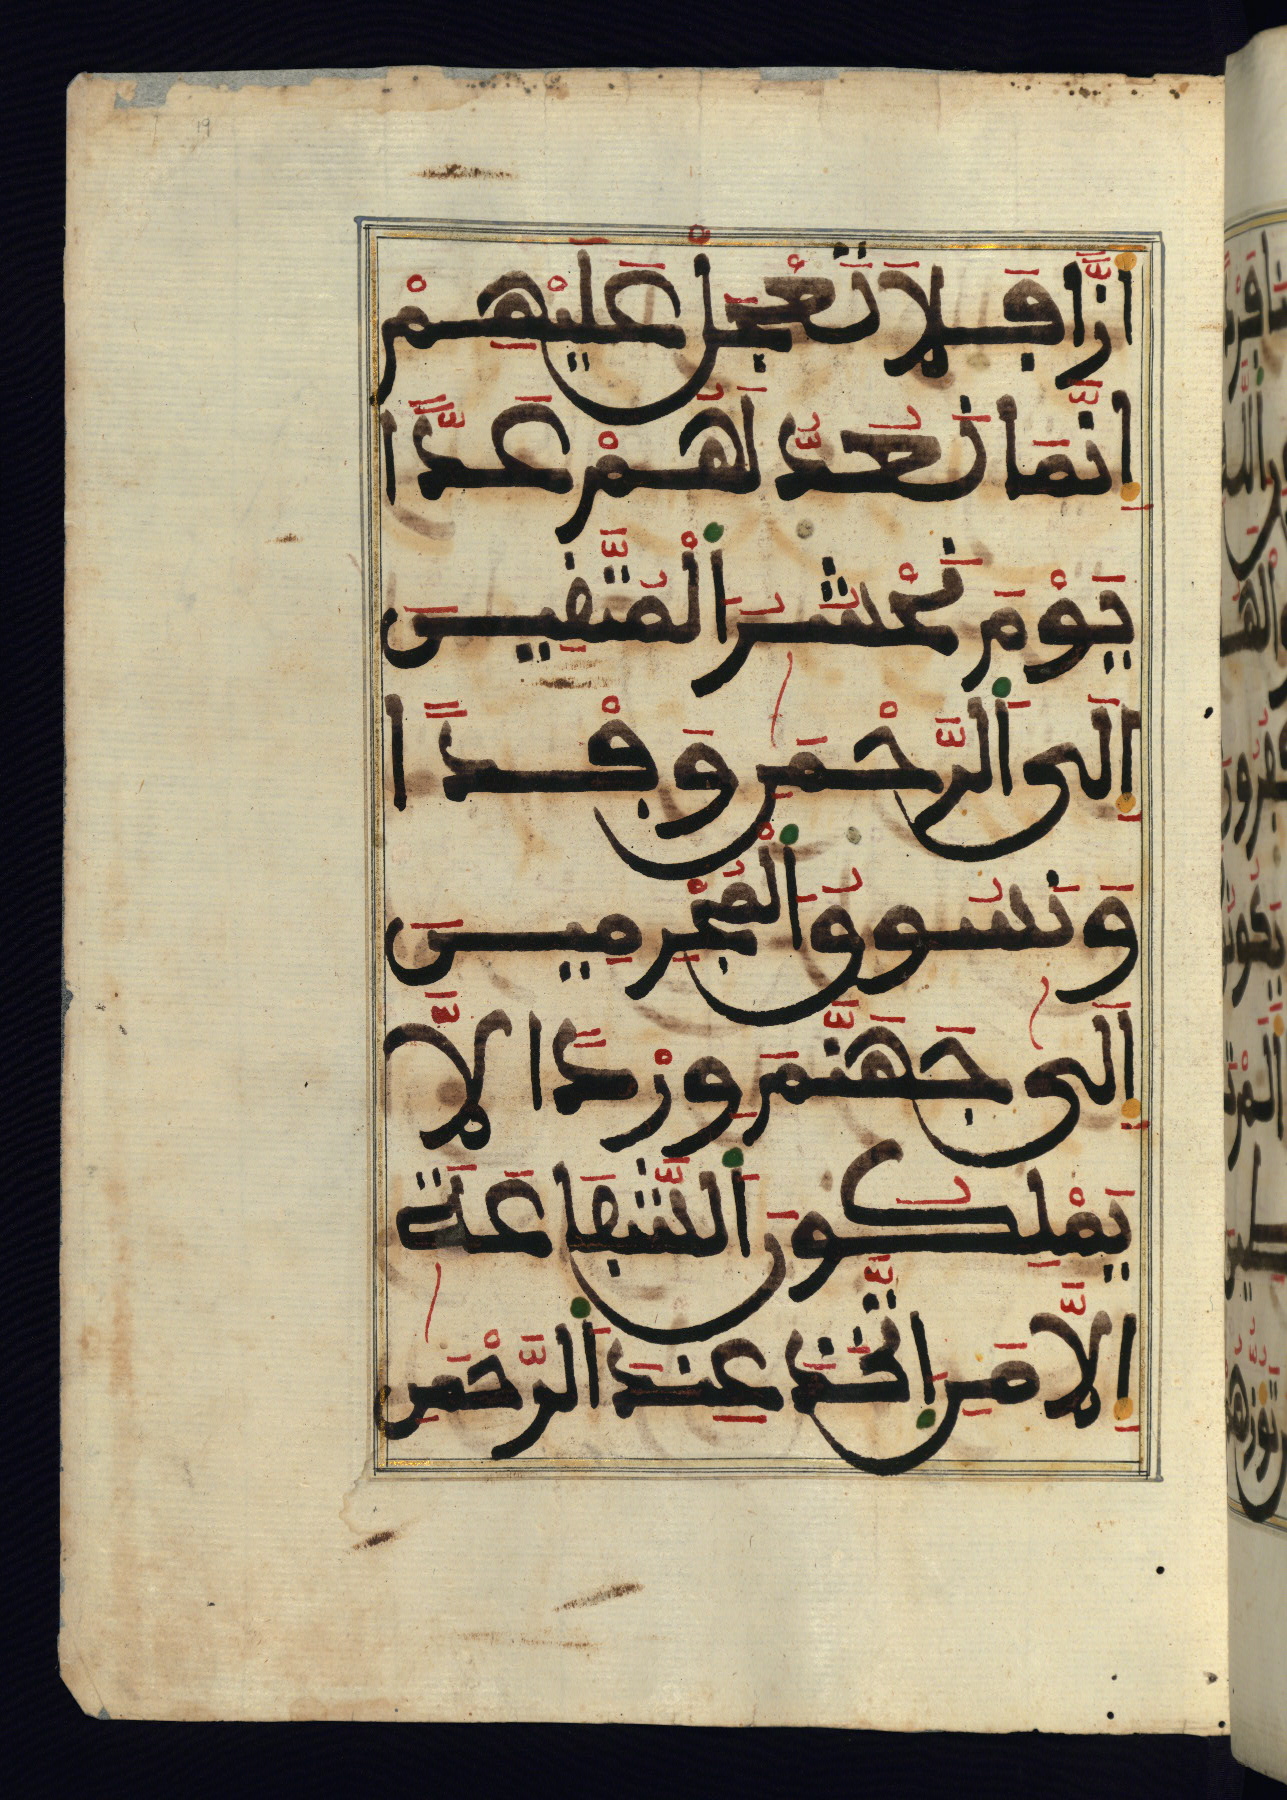 19
أَزّٗا فَلَا تَعْجَلْ عَلَيْهِمْ
إِنَّمَا نَعُدُّ لَهُمْ عَدّٗا
يَوْمَ نَحْشُرُ اَلْمُتَّقِينَ
إِلَى اَلرَّحْمَٰنِ وَفْدٗا
وَنَسُوقُ اَلْمُجْرِمِينَ
إِلَىٰ جَهَنَّمَ وِرْدٗا لَّا
يَمْلِكُونَ اَلشَّفَاعَةَ
إِلَّا مَنِ اِتَّخَذَ عِندَ اَلرَّحْمَٰنِ